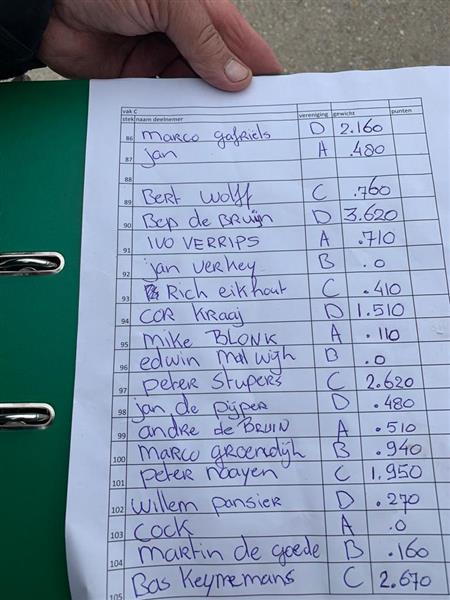 vak C
stek naam deelnemer vereniging gewicht punten
86 marco gafriels D 2.160
87 jan A .480
88
89 Bert Wolff C .760
90 Bep de Bruijn D 3.620
91 IVO VERRIPS A .710
92 jan verhey B .0
93 Rich eikhout C .410
94 COR Kraaij D 1.510
95 MIKE BLONK A .110
96 edwin mal wijh B .0
97 peter Stupers C 2.620
98 jan de pijper D .480
99 andre de BRUIN A .510
100 marco groendijh B .940
101 peter naayen C 1.950
102 willem pansier D .270
103 COCK A .0
104 martin de goede B .160
105 Bas Keynemans C 2.670